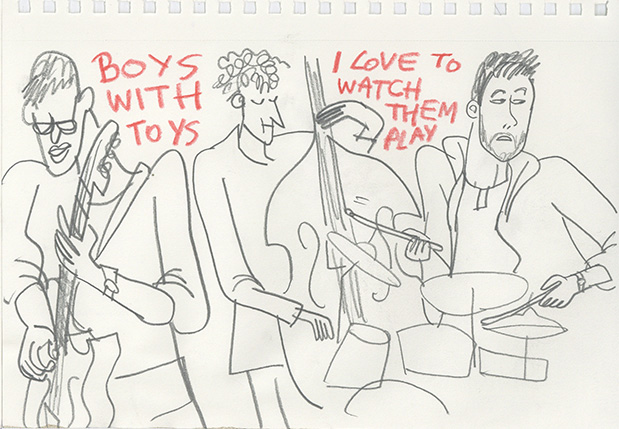 BOYS
WITH
TOYS
I LOVE TO
WATCH
THEM
PLAY